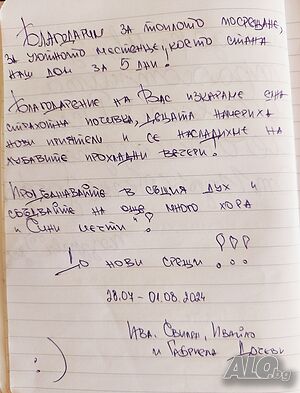 Благодарим за топлото посрещане,
за уютното местенце, което стана
наш дом за 5 дни!
Благодарение на Вас изкарахме една
страхотна почивка, децата намериха
нови приятели и се насладихме на
хубавите прохладни вечери!
Продължавайте в същия дух и
сбъдвайте на още много хора
и "Сини мечти"!
До нови срещи!!!
28.07 - 01.08.2024
Ива, Ивайло
и Габриела
:)
ALO.bg